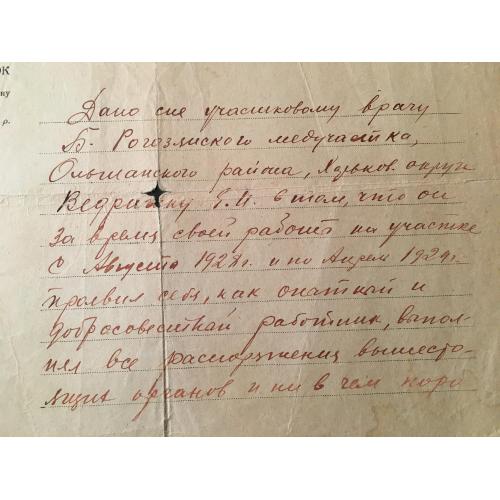 ОК
ну
р.
Дано сие участковому врачу
Б. Рогозянского медучастка,
Ольшанского района, Харьков. округи
в том, что он
за время своей работы на участке
с Августа 1928 г. и по Апрель 1929 г.
проявил себя, как опытный и
добросовестный работник, выпол-
нял все распоряжения вышесто-
ящих органов и ни в чем